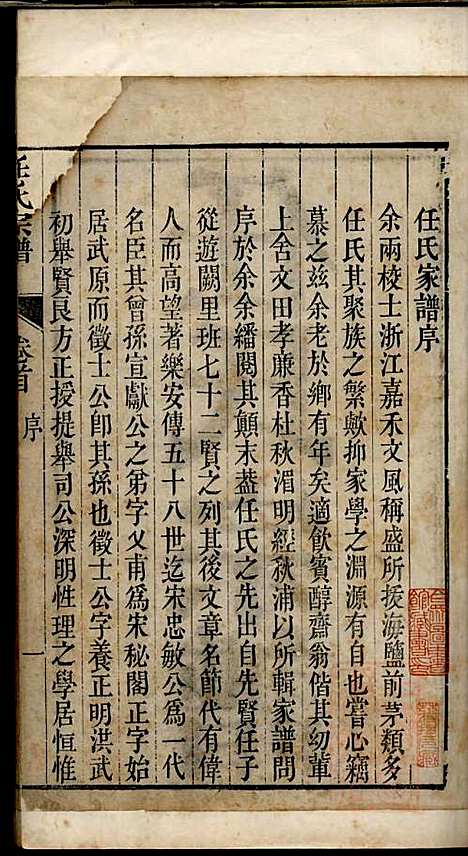 任氏家譜序
余兩校士浙江嘉禾文風稱盛所援海鹽前茅類多
任氏其聚族之繁歟抑家學之淵源有自也嘗心竊
慕之茲余老於鄉有年矣適飲賓醇齋翁偕其幼輩
上舍文田孝亷香杜秋湄明經秋浦以所輯家譜問
序於余余繙閱其顛末葢任氏之先出自先賢任子
從遊闕里班七十二賢之列其後文章名節代有偉
人而高望著樂安傳五十八世迄宋忠敏公爲一代
名臣其曾孫宣獻公之弟字乂甫爲宋秘閣正字始
居武原而徵士公卽其孫也徵士公字養正明洪武
初舉賢良方正授提舉司公深明性理之學居恒惟
任氏宗譜
卷首
序
一